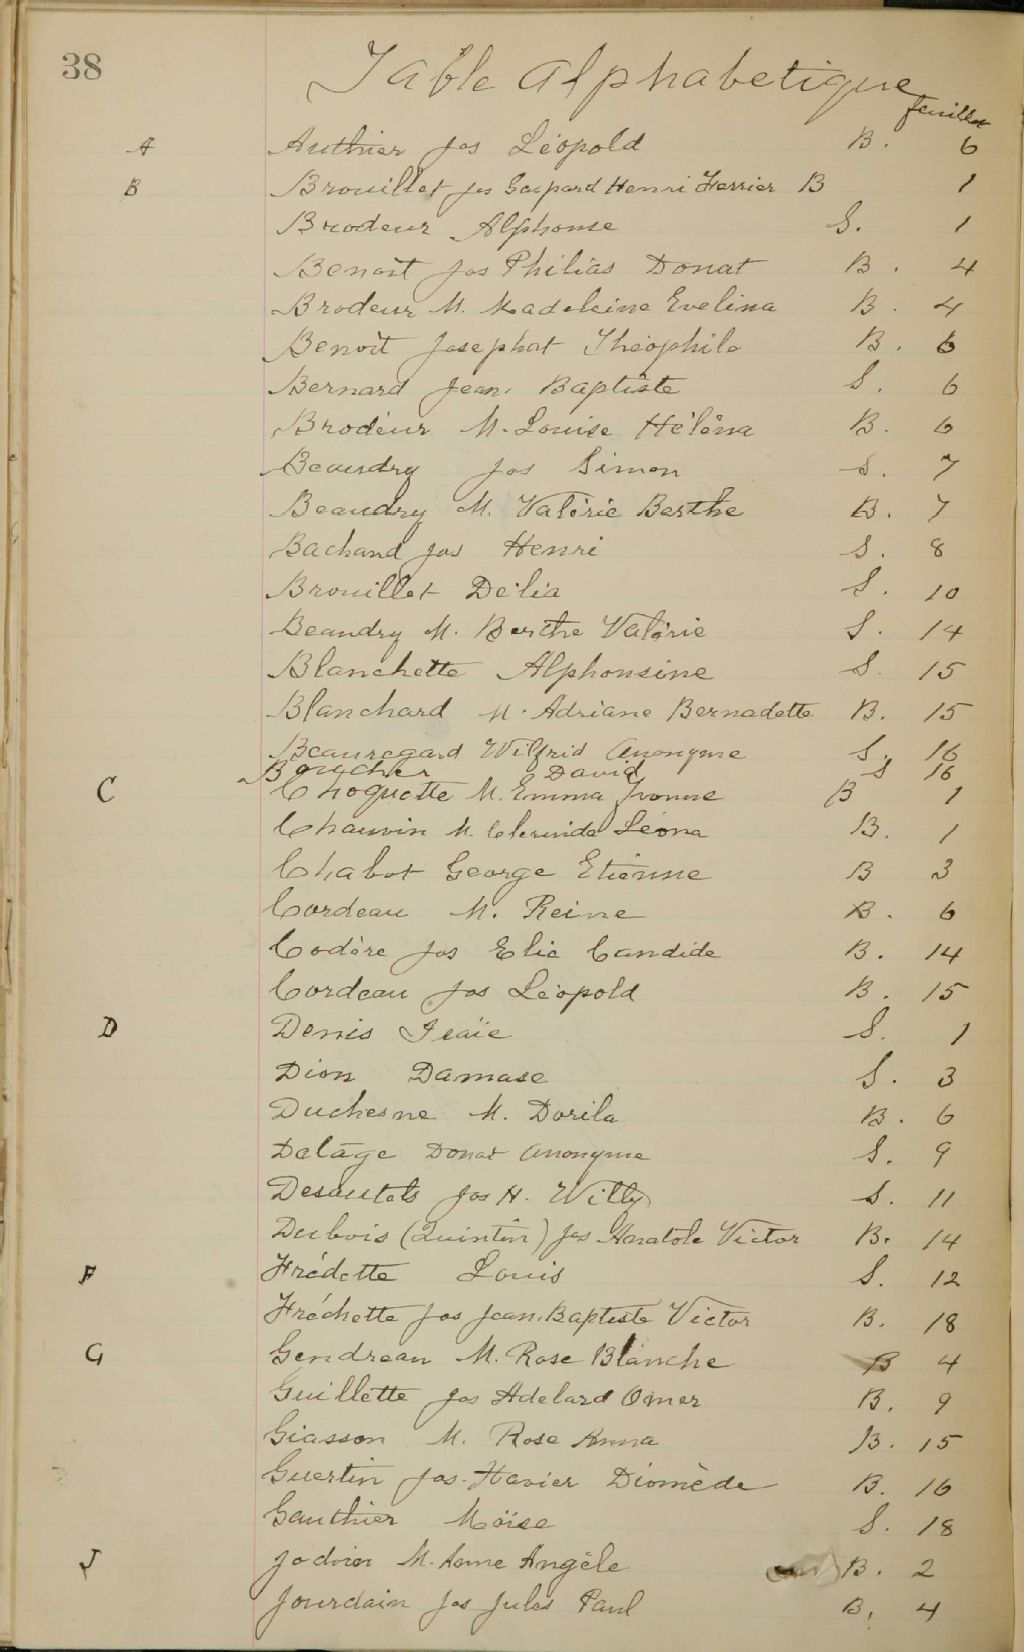 38
Table Alphabetique
feuillet
A Authier Jos Léopold B. 6
B Brouillet Jos Gaspard Henri Ferrier B 1
Brodeur Alphonse S. 1
Benoit Jos Philias Donat B. 4
Brodeur M. Madeleine Evelina B. 4
Benoit Josephat Théophile B. 6
Bernard Jean. Baptiste S. 6
Brodeur M. Louise Héléna B. 6
Beaudry Jos Simon S. 7
Beaudry M. Valérie Berthe B. 7
Bachand Jos Henri S. 8
Brouillet Délia S. 10
Beaudry M. Berthe Valérie S. 14
Blanchette Alphonsine S. 15
Blanchard M. Adriane Bernadette B. 15
Beauregard Wilfrid Anonyme S. 16
Boucher David S 16
C Choquette M. Emma Yvonne B 1
Chauvin M. Clerinda Léona B. 1
Chabot George Etienne B 3
Cordeau M. Reine B. 6
Codère Jos Elie Candide B. 14
Cordeau Jos Léopold B. 15
D Denis Isaïe S. 1
Dion Damase S. 3
Duchesne M. Dorila B. 6
Delâge Donat Anonyme S. 9
Desautels Jos H. Willy S. 11
Dubois (Quintin) Jos Anatole Victor B. 14
F Frédette Louis S. 12
Fréchette Jos Jean. Baptiste Victor B. 18
G Gendreau M. Rose Blanche B 4
Guillette Jos Adelard Omer B. 9
Giasson M. Rose Anna B. 15
Guertin Jos. Xavier Diomède B. 16
Gauthier Moïse S. 18
J Jodoin M. Anne Angèle B. 2
Jourdain Jos Jules Paul B. 4